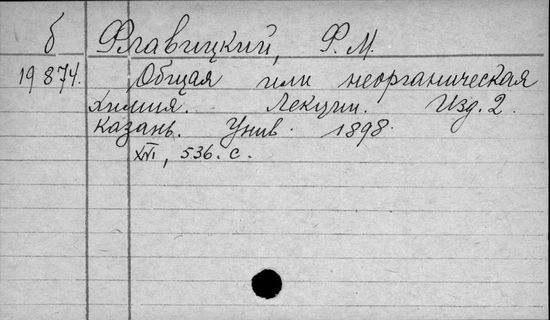 б Флавицкий, Ф. М.
19874. Общая или неорганическая
химия. Лекции. Изд. 2.
Казань. Унив. 1898.
XVI, 536. с.